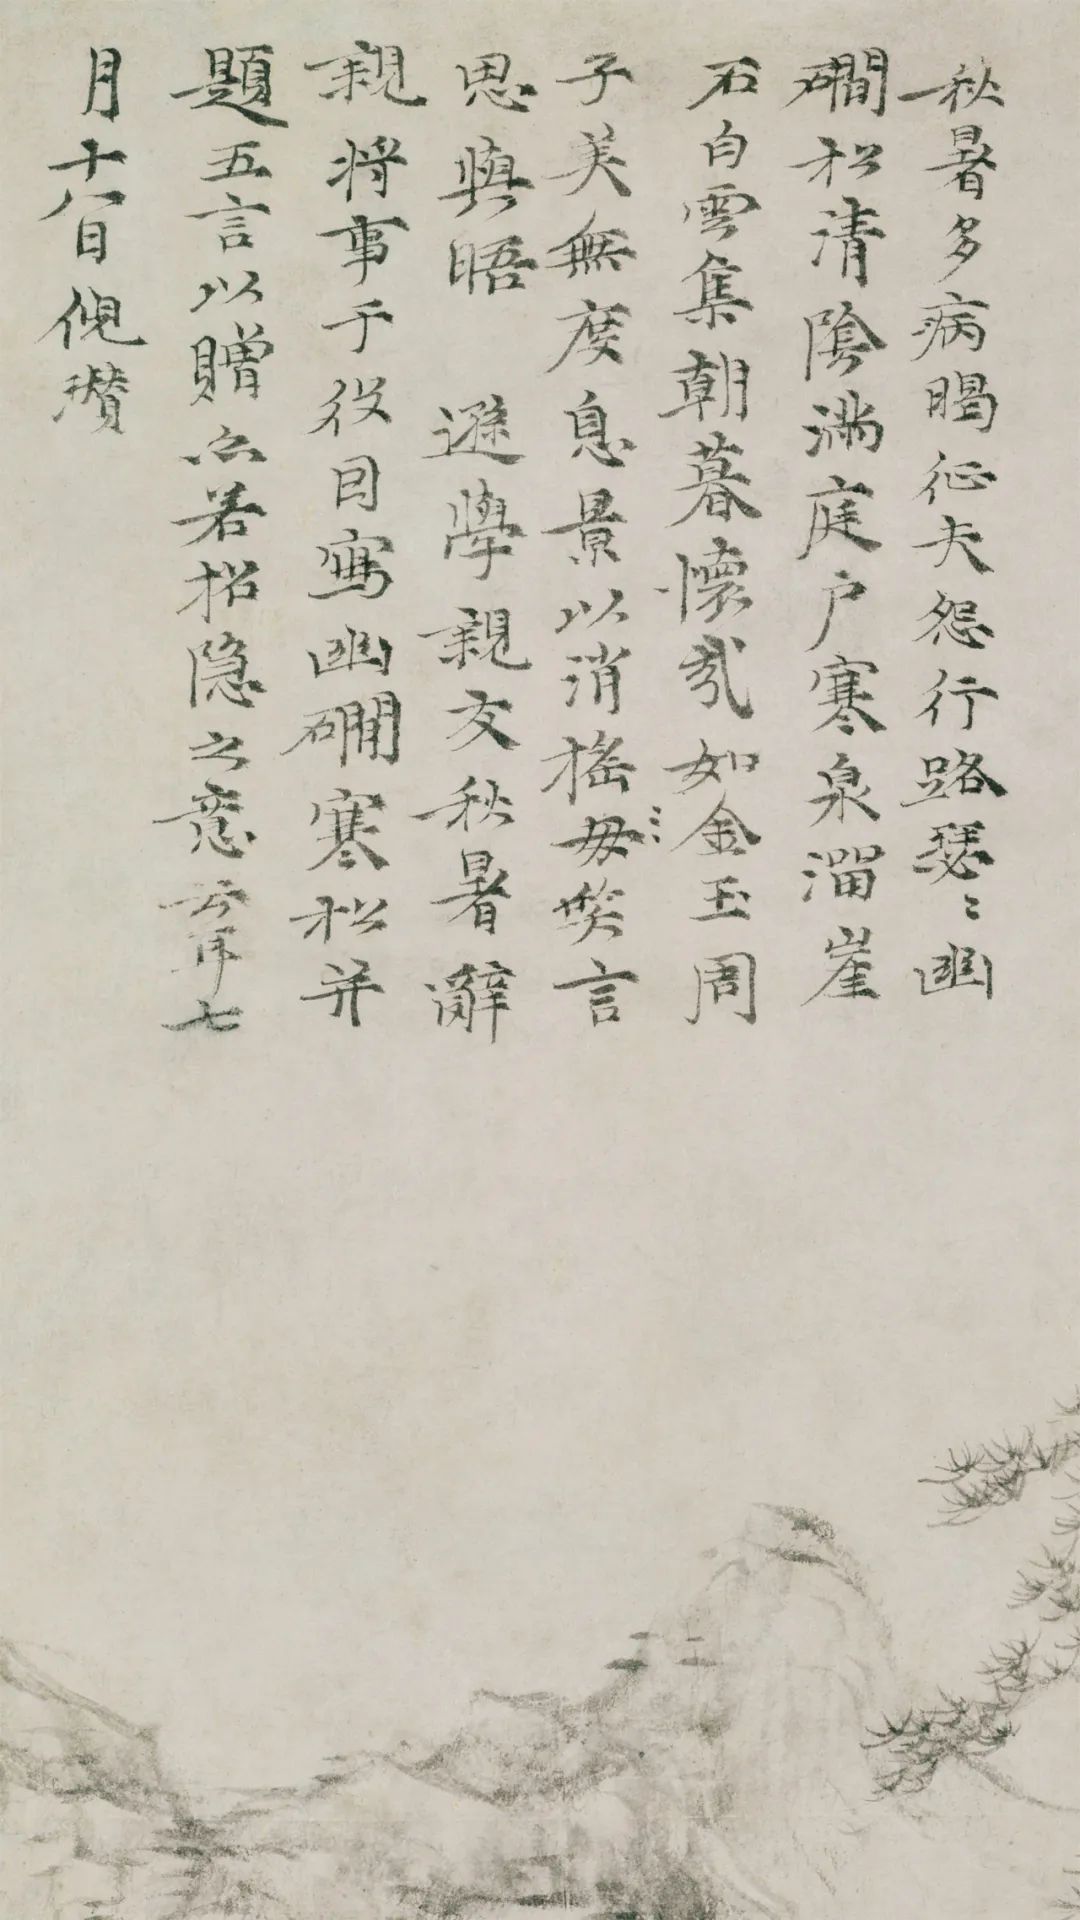 秋暑多病暍征夫怨行路瑟〻幽
磵松清陰滿庭戶寒泉溜崖
石白雲集朝暮懷哉如金玉周
子美無度息景以消搖毋㗛言
思與晤　遜學親友秋暑辭
親將事于役因寫幽磵寒松并
題五言以贈亦若招隱之意云耳七
月十八日倪瓚